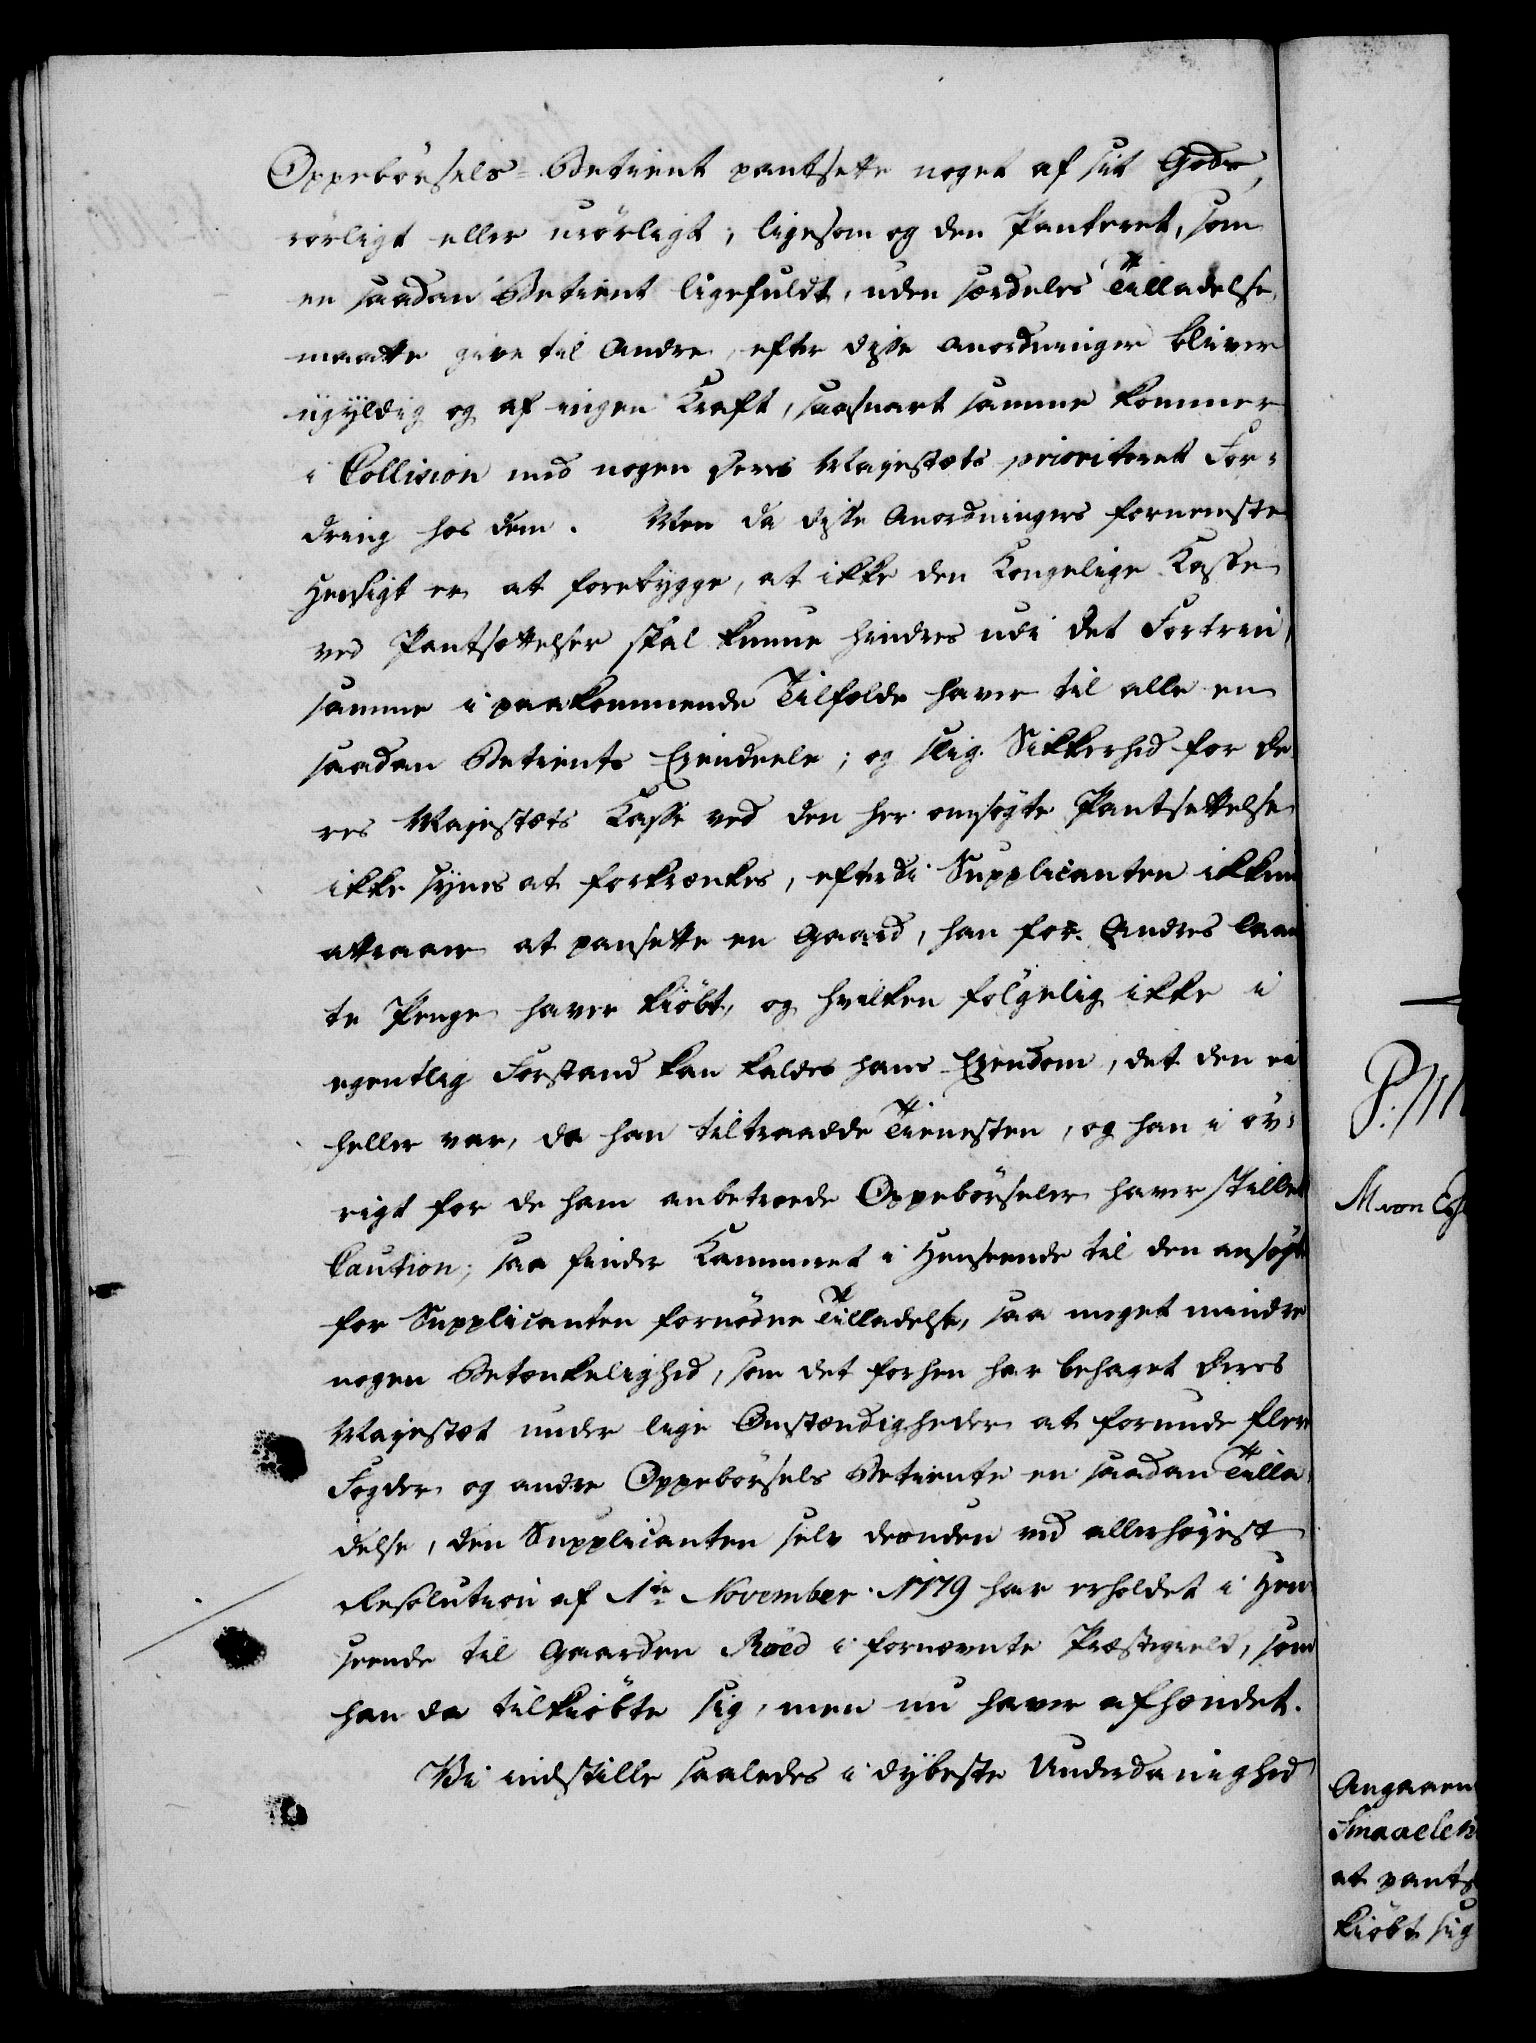 Oppebörsels-Betient pantsette noget af sit Gods,
rörligt eller urörligt, ligesom og den Panteret, som
en saadan Betient ligefuldt, uden særdeles Tilladelse,
maatte give til Andre, efter disse Anordninger bliver
ugyldig og af ingen Kraft, saasnart samme kommer
i Collision med nogen Deres Majestæts prioriteret For-
dring hos dem. Men da disse Anordningers fornemste
Hensigt er at forebygge, at ikke den Kongelige Kasse
ved Pantsættelser skal kunne hindres udi det Fortrin,
samme i paakommende Tilfælde haver til alle en
saadan Betients Eiendeele; og slig Sikkerhed for De-
res Majestæts Kasse ved den her omsögte Pantsettelse
ikke synes at forkrænkes, efterdi Supplicanten ikkun
attraaer at pansette en Gaard, han for Andres laan-
te Penge haver kiöbt, og hvilken fölgelig ikke i
egentlig Forstand kan kaldes hans Eiendom, det den ei
heller var, da han tiltraadde Tienesten, og han i öv-
rigt for de ham anbetroede Oppebörseler haver stillet
Caution; saa finder Kammeret i Henseende til den ansögte
for Supplicanten fornödne Tilladelse, saa meget mindre
nogen Betænkelighed, som det forhen har behaget Deres
Majestæt under lige Omstændigheder at forunde flere
Fogder og andre Oppebörsels Betiente en saadan Tilla-
delse, den Supplicanten selv desuden ved allerhöjest
Resolution af 1te November 1779 har erholdet i Hen-
seende til Gaarden Röed i fornævnte Præstegield, som
han da tilkiöbte sig, men nu haver afhændet.
Vi indstille saaledes i dybeste Underdanighed
P. M
M von Eg
Angaaen
Smaaleh
at pants
kiöbt sig